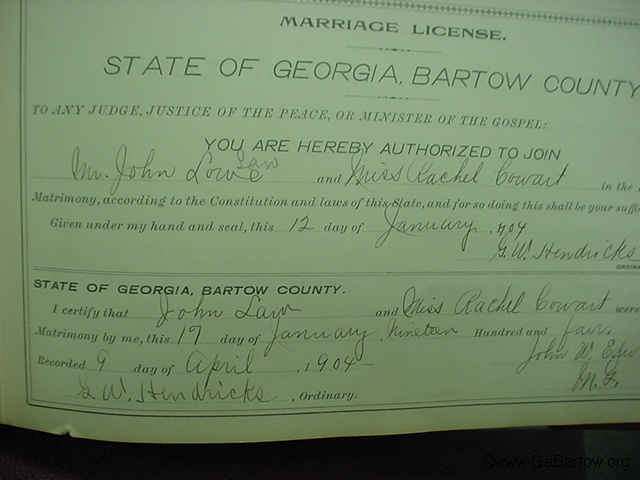 MARRIAGE LICENSE.
STATE OF GEORGIA, BARTOW COUNTY
TO ANY JUDGE, JUSTICE OF THE PEACE, OR MINISTER OF THE GOSPEL:
YOU ARE HEREBY AUTHORIZED TO JOIN
Law
Mr. John Lowe and Miss Rachel Cowart in the
Matrimony, according to the Constitution and laws of this State, and for so doing this shall be your suffi
Given under my hand and seal, this 12 day of January, 904
G. W. Hendricks
ORDIN
STATE OF GEORGIA, BARTOW COUNTY.
I certify that John Law and Miss Rachel Cowart were
Matrimony by me, this 17 day of January, Nineteen Hundred and four.
John W. Edw
Recorded 9 day of April, 1904
M. G.
G. W. Hendricks, Ordinary.
©www.GaBartow.org